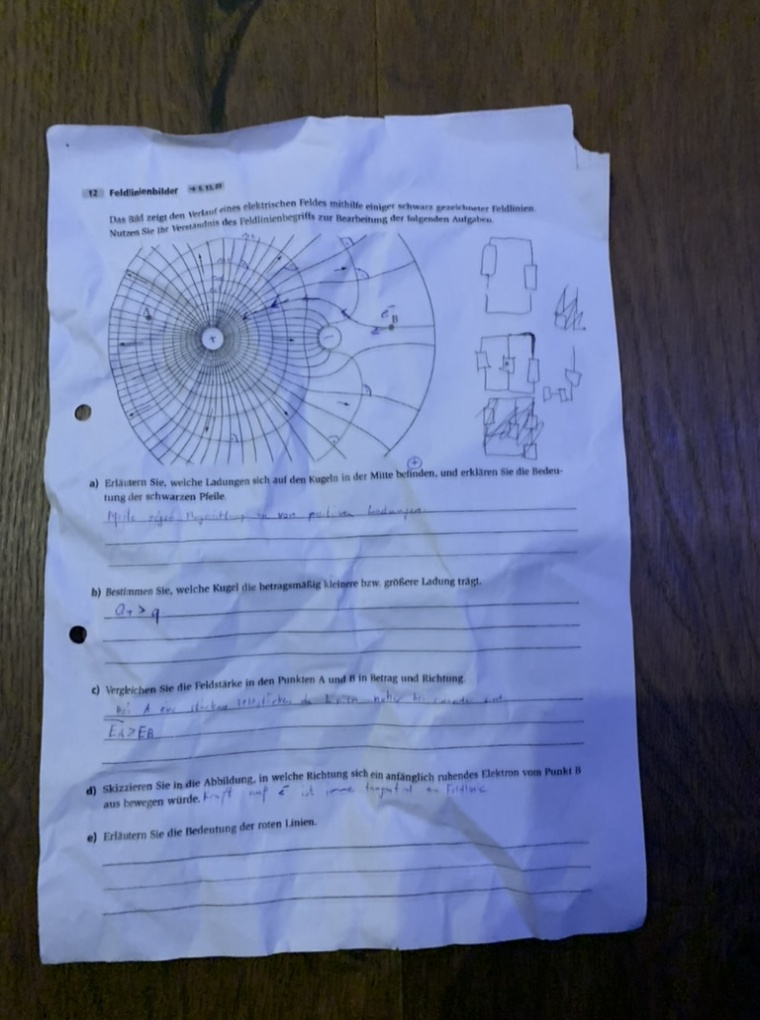 12 Feldlinienbilder
Das Bild zeigt den Verlauf eines elektrischen Feldes mithilfe einiger schwarz gezeichneter Feldlinien.
Nutzen Sie Ihr Verständnis des Feldlinienbegriffs zur Bearbeitung der folgenden Aufgaben.
e⁻
B
+
−
+
a) Erläutern Sie, welche Ladungen sich auf den Kugeln in der Mitte befinden, und erklären Sie die Bedeu-
tung der schwarzen Pfeile.
Pfeile zeigen von positiven Ladungen
b) Bestimmen Sie, welche Kugel die betragsmäßig kleinere bzw. größere Ladung trägt.
> q
c) Vergleichen Sie die Feldstärke in den Punkten A und B in Betrag und Richtung.
bei A Linien näher bei
EA > EB
d) Skizzieren Sie in die Abbildung, in welche Richtung sich ein anfänglich ruhendes Elektron vom Punkt B
aus bewegen würde. Kraft auf e⁻ ist immer tangential an Feldlinie
e) Erläutern Sie die Bedeutung der roten Linien.